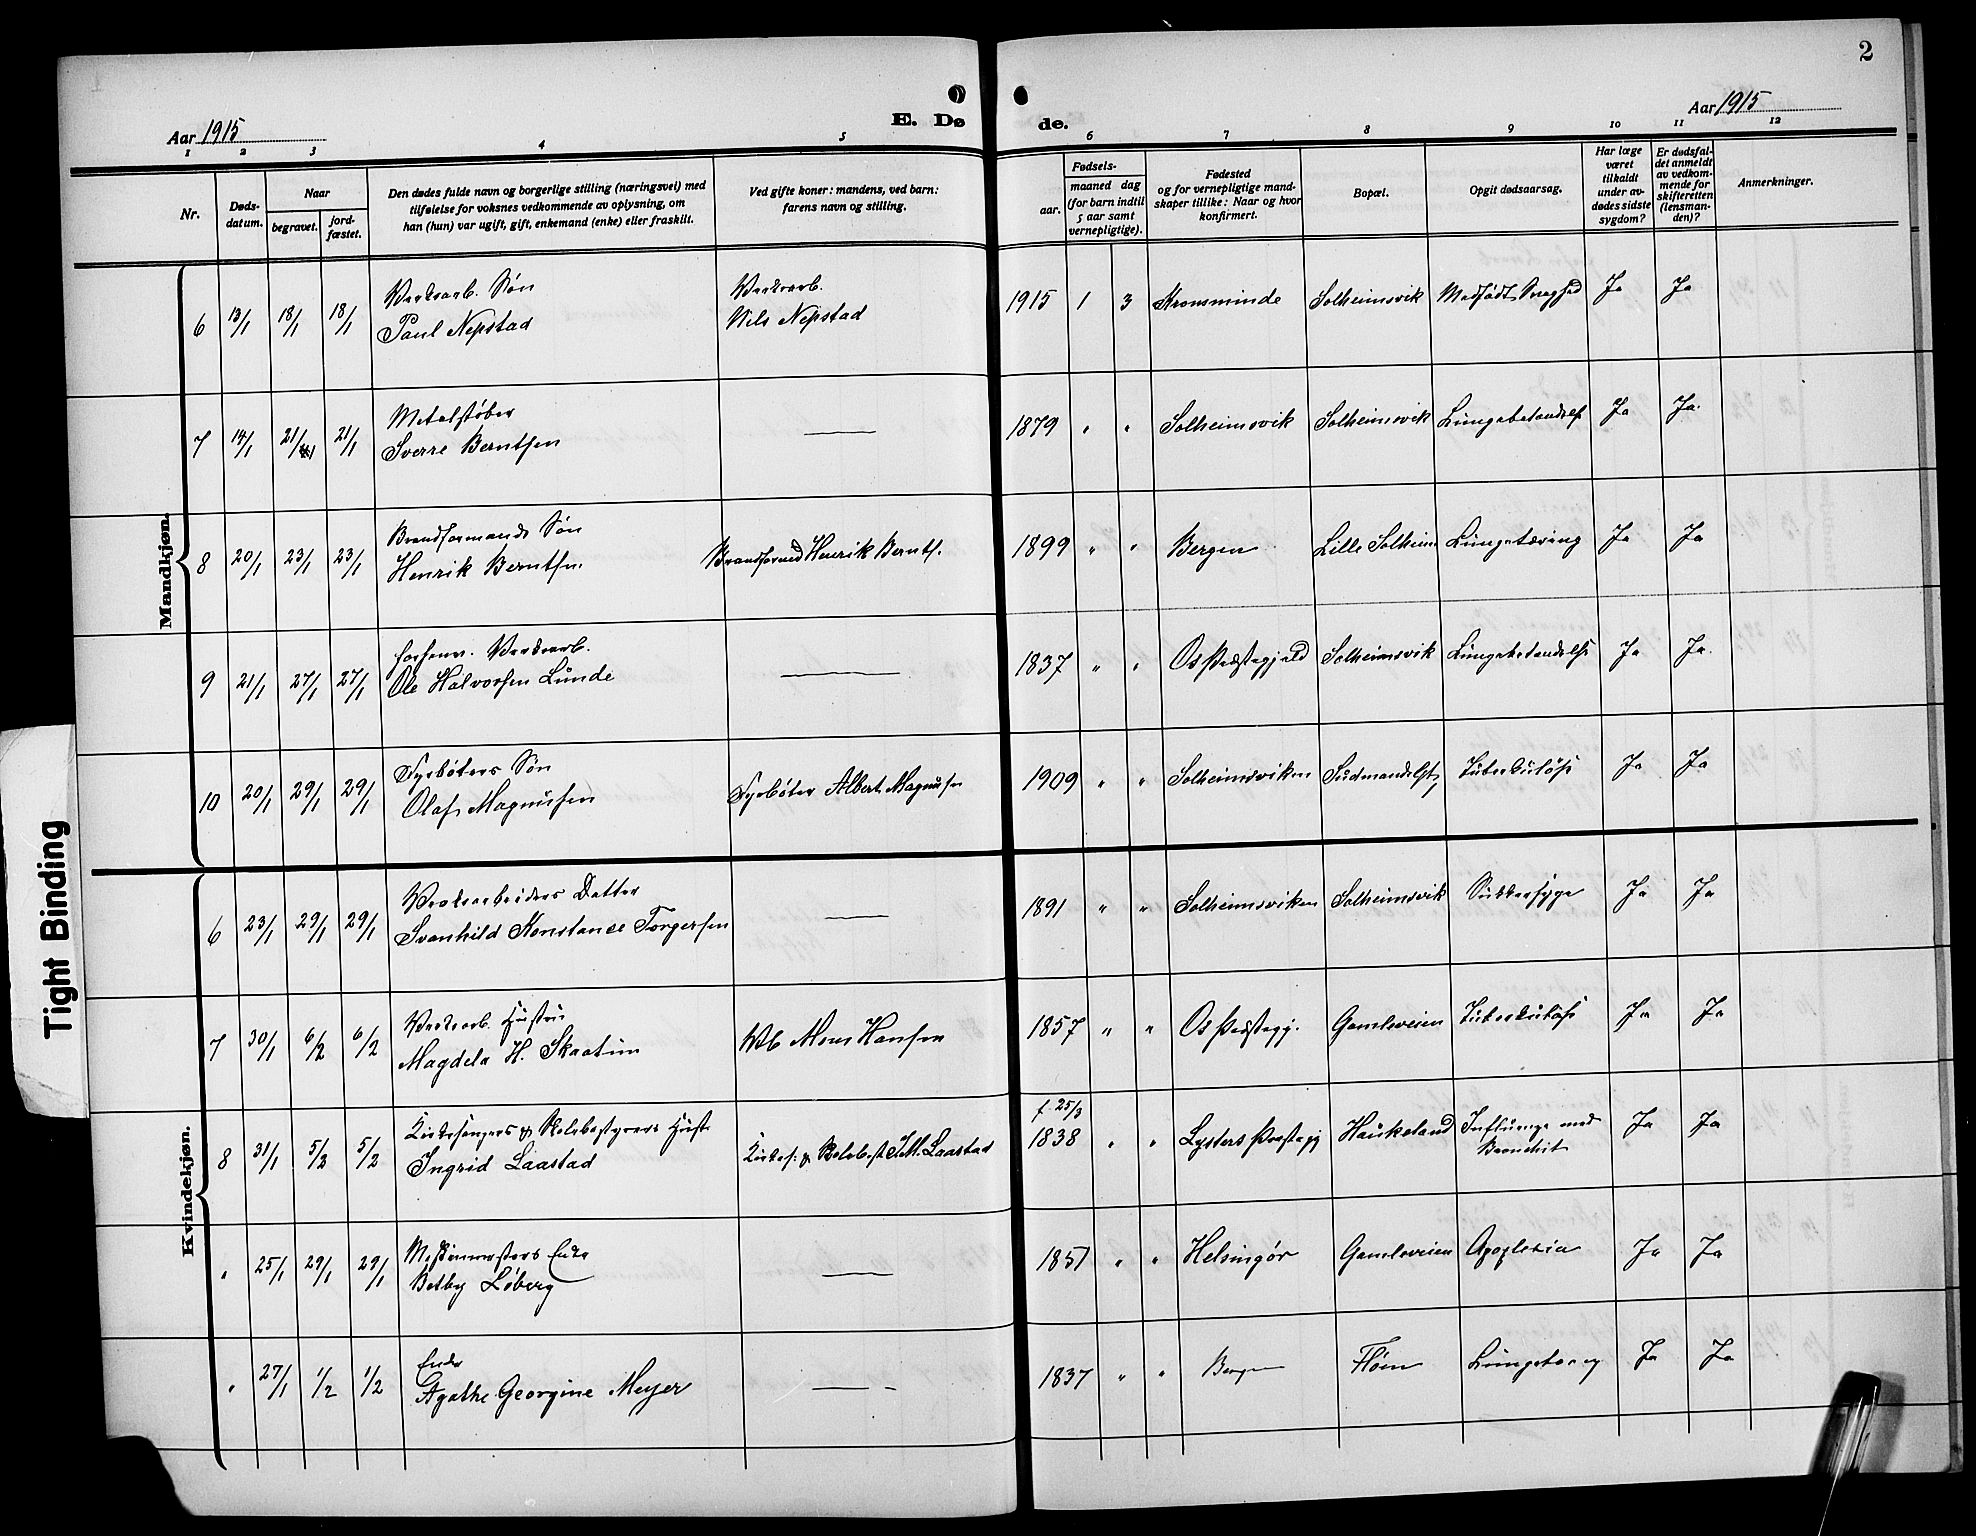 2
Aar 1915
E. Dø
de.
Aar 1915
1 2 3 4 5 6 7 8 9 10 11 12
Nr.
Døds-
datum.
Naar
begravet.
jord-
fæstet.
Den dødes fulde navn og borgerlige stilling (næringsvei) med
tilføielse for voksnes vedkommende av oplysning, om
han (hun) var ugift, gift, enkemand (enke) eller fraskilt.
Ved gifte koner: mandens, ved barn:
farens navn og stilling.
Fødsels-
aar.
maaned dag
(for barn indtil
5 aar samt
vernepligtige).
Fødested
og for vernepligtige mand-
skaper tillike: Naar og hvor
konfirmert.
Bopæl.
Opgit dødsaarsag.
Har læge
været
tilkaldt
under av-
dødes sidste
sygdom?
Er dødsfal-
det anmeldt
av vedkom-
mende for
skifteretten
(lensman-
den)?
Anmerkninger.
Mandkjøn.
Verksarb. Søn Verksarb.
6 13/1 18/1 18/1 Paul Nepstad Nils Nepstad 1915 1 3 Kronsminde Solheimsvik Medfødt Svaghed Ja Ja
Metalstøber
7 14/1 21/1 21/1 Sverre Berntsen — 1879 " " Solheimsvik Solheimsvik Lungebetændelse Ja Ja.
Brandformands Søn
8 20/1 23/1 23/1 Henrik Berntsen. Brandformd Henrik Bernts. 1899 " " Bergen Lille Solheim Lungetæring Ja Ja
forhenv. Verksarb.
9 21/1 27/1 27/1 Ole Halvorsen Lunde — 1837 " " Os Præstegjeld Solheimsvik Lungebetændelse Ja Ja.
Fyrbøters Søn
10 20/1 29/1 29/1 Olaf Magnussen Fyrbøter Albert Magnusen 1909 " " Solheimsviken Sudmandsst, Tuberkuløse Ja Ja
Kvindekjøn.
Verksarbeiders Datter
6 23/1 29/1 29/1 Svanhild Konstance Torgersen — 1891 " " Solheimsviken Solheimsvik Sukkersyge Ja Ja
Verksarb. Hustru
7 30/1 6/2 6/2 Magdela H. Skaatun Vb Mons Hansen 1857 " " Os Præstegj. Gamleveien Tuberkuløse Ja Ja
Kirkesangers & Skolebestyrers Hust f. 25/3
8 31/1 5/2 5/2 Ingrid Laastad Kirkes. & Skolebest Laastad 1838 " " Lysters Præstegj Haukeland Influenza med Bronchit Ja Ja
Maskinmesters Enke
" 25/1 29/1 29/1 Betby Løberg — 1851 " " Helsingør Gamleveien Apoplexia Ja Ja
Enke
" 27/1 1/2 1/2 Agathe Georgine Meyer — 1837 " " Bergen Fløen Lungetæring Ja Ja
Tight Binding